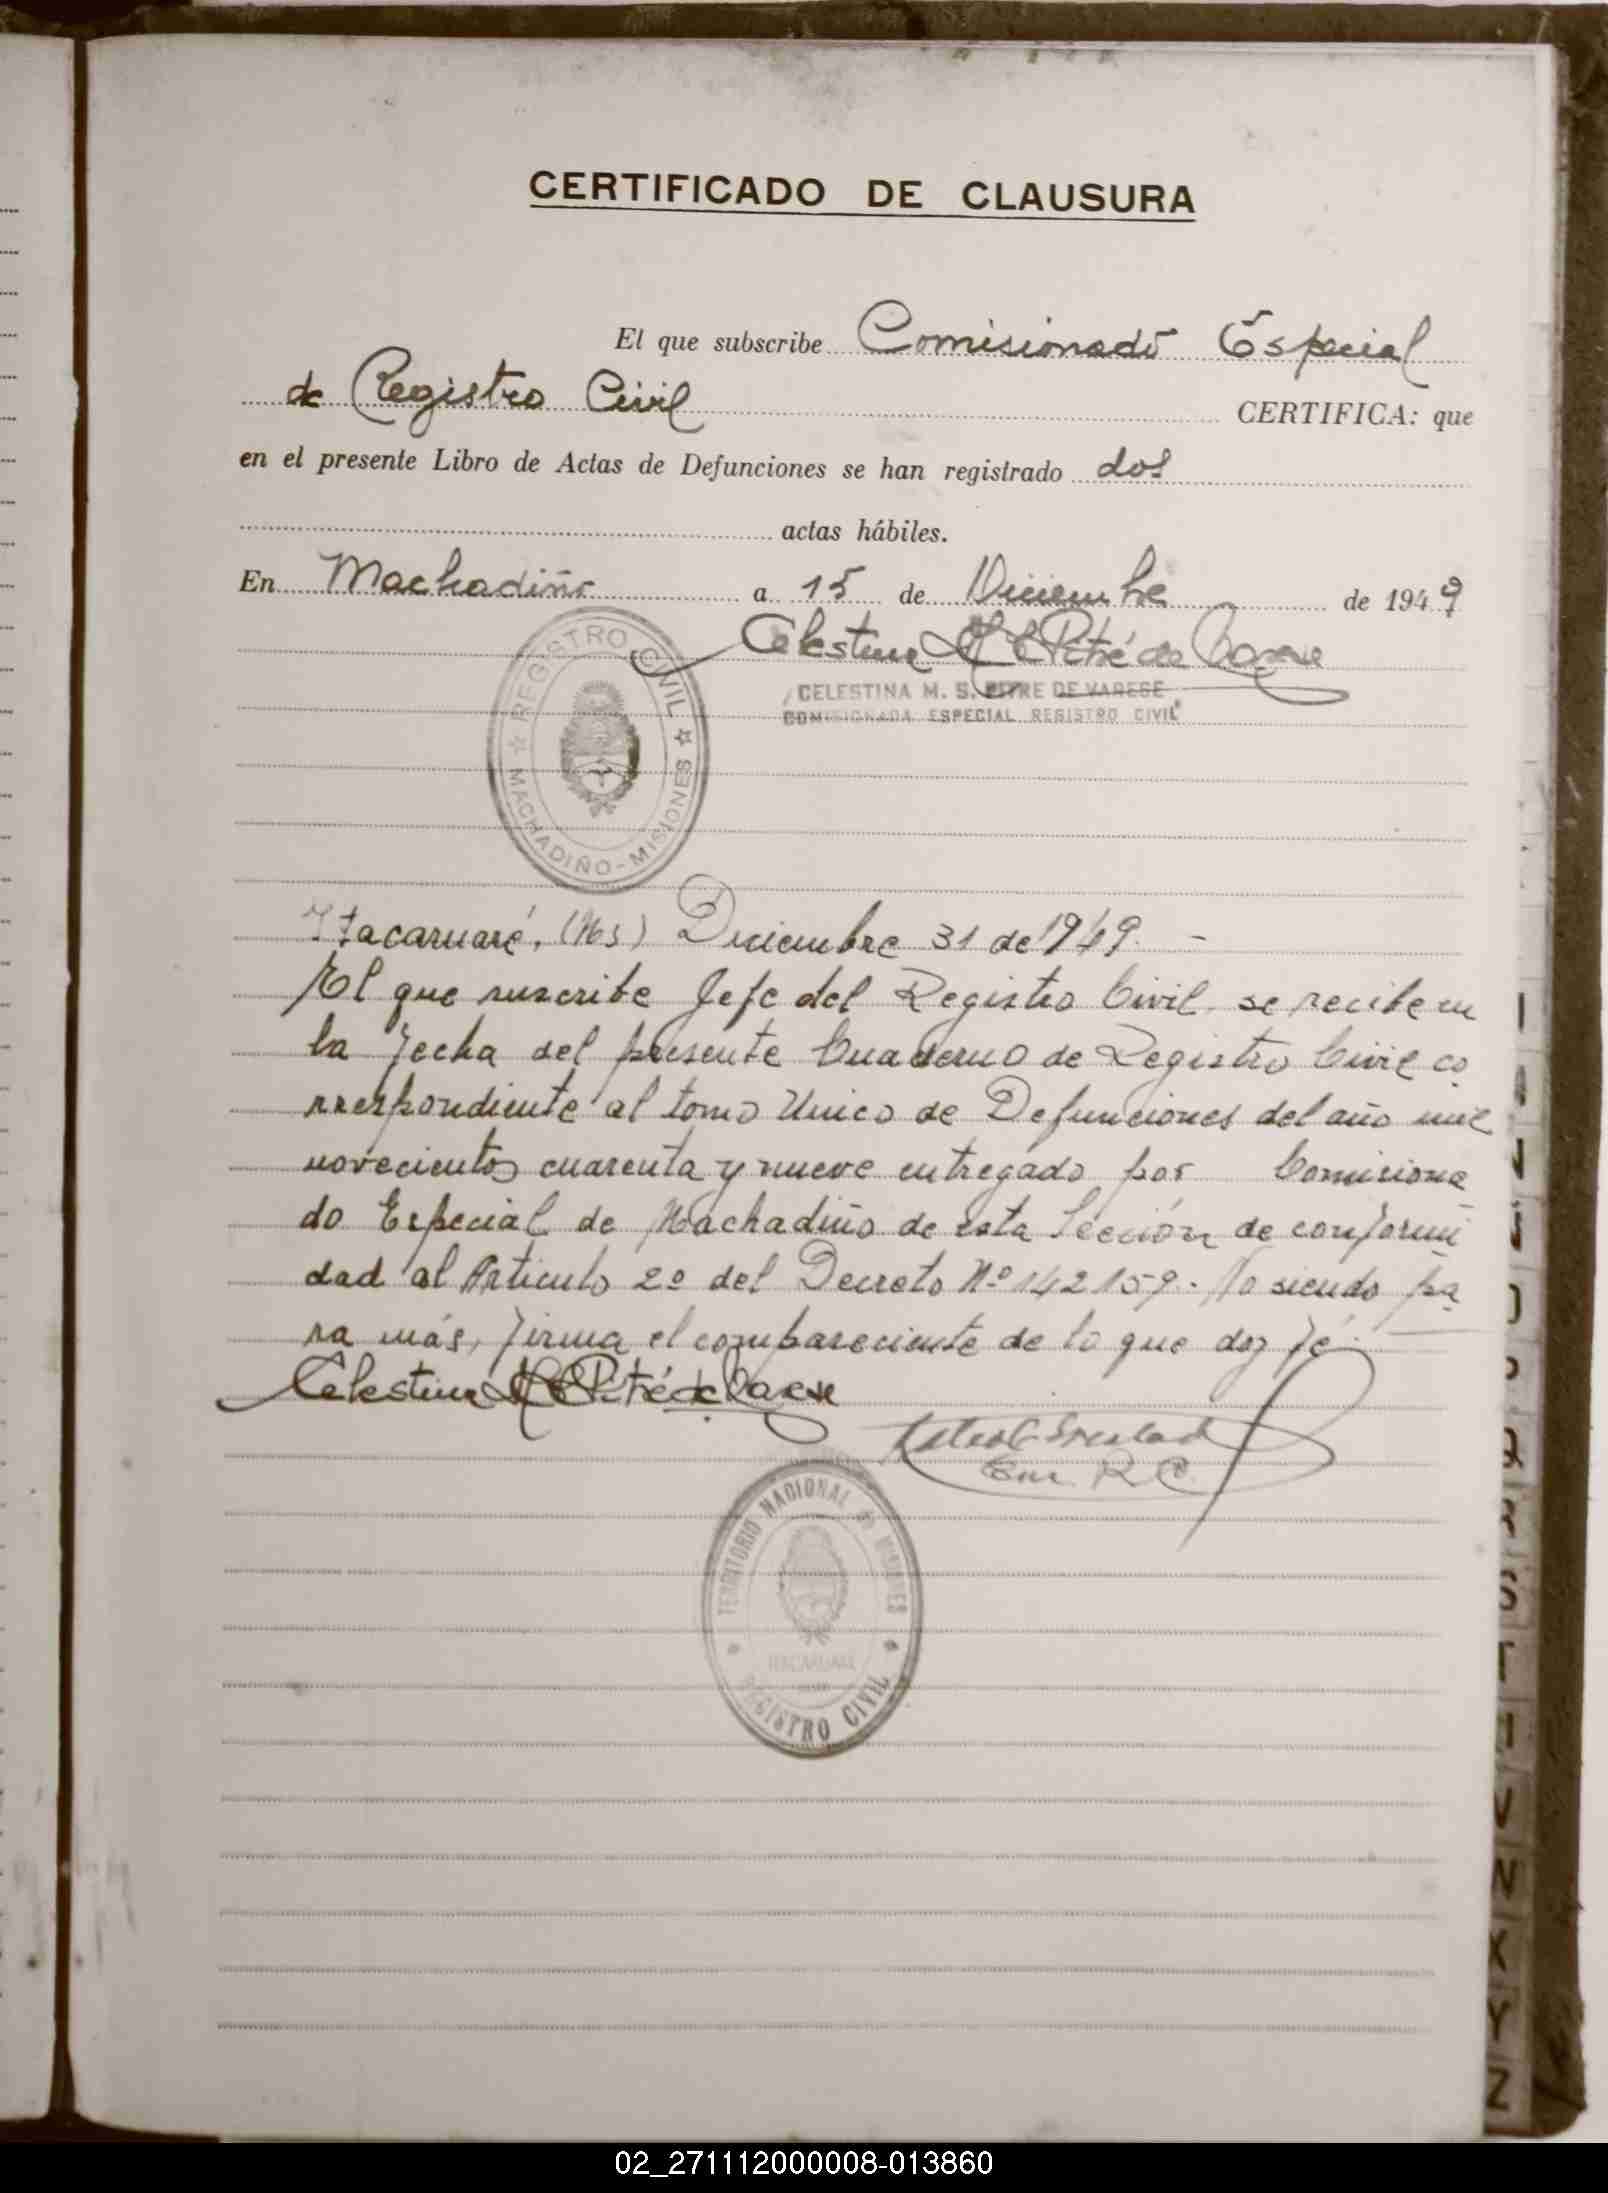 CERTIFICADO DE CLAUSURA
El que subscribe Comisionado Especial
de Registro Civil CERTIFICA: que
en el presente Libro de Actas de Defunciones se han registrado dos
actas hábiles.
En Machadiño a 15 de Diciembre de 1949
Celestina M S Pitré de Varese
CELESTINA M. S. PITRE DE VARESE
COMISIONADA ESPECIAL REGISTRO CIVIL
REGISTRO CIVIL
MACHADIÑO-MISIONES
Itacaruaré, (Ms) Diciembre 31 de 1949. -
El que suscribe Jefe del Registro Civil, se recibe en
la fecha del presente Cuaderno de Registro Civil co
rrespondiente al tomo Unico de Defunciones del año mil
novecientos cuarenta y nueve entregado por Comisiona
do Especial de Machadiño de esta Sección de conformi
dad al Artículo 2º del Decreto Nº 142159.- No siendo pa
ra más, firma el compareciente de lo que doy fé.
Celestina M S Pitré de Varese
R C.
TERRITORIO NACIONAL DE MISIONES
ITACARUARE
REGISTRO CIVIL
S
T
V
X
Y
Z
02_271112000008-013860